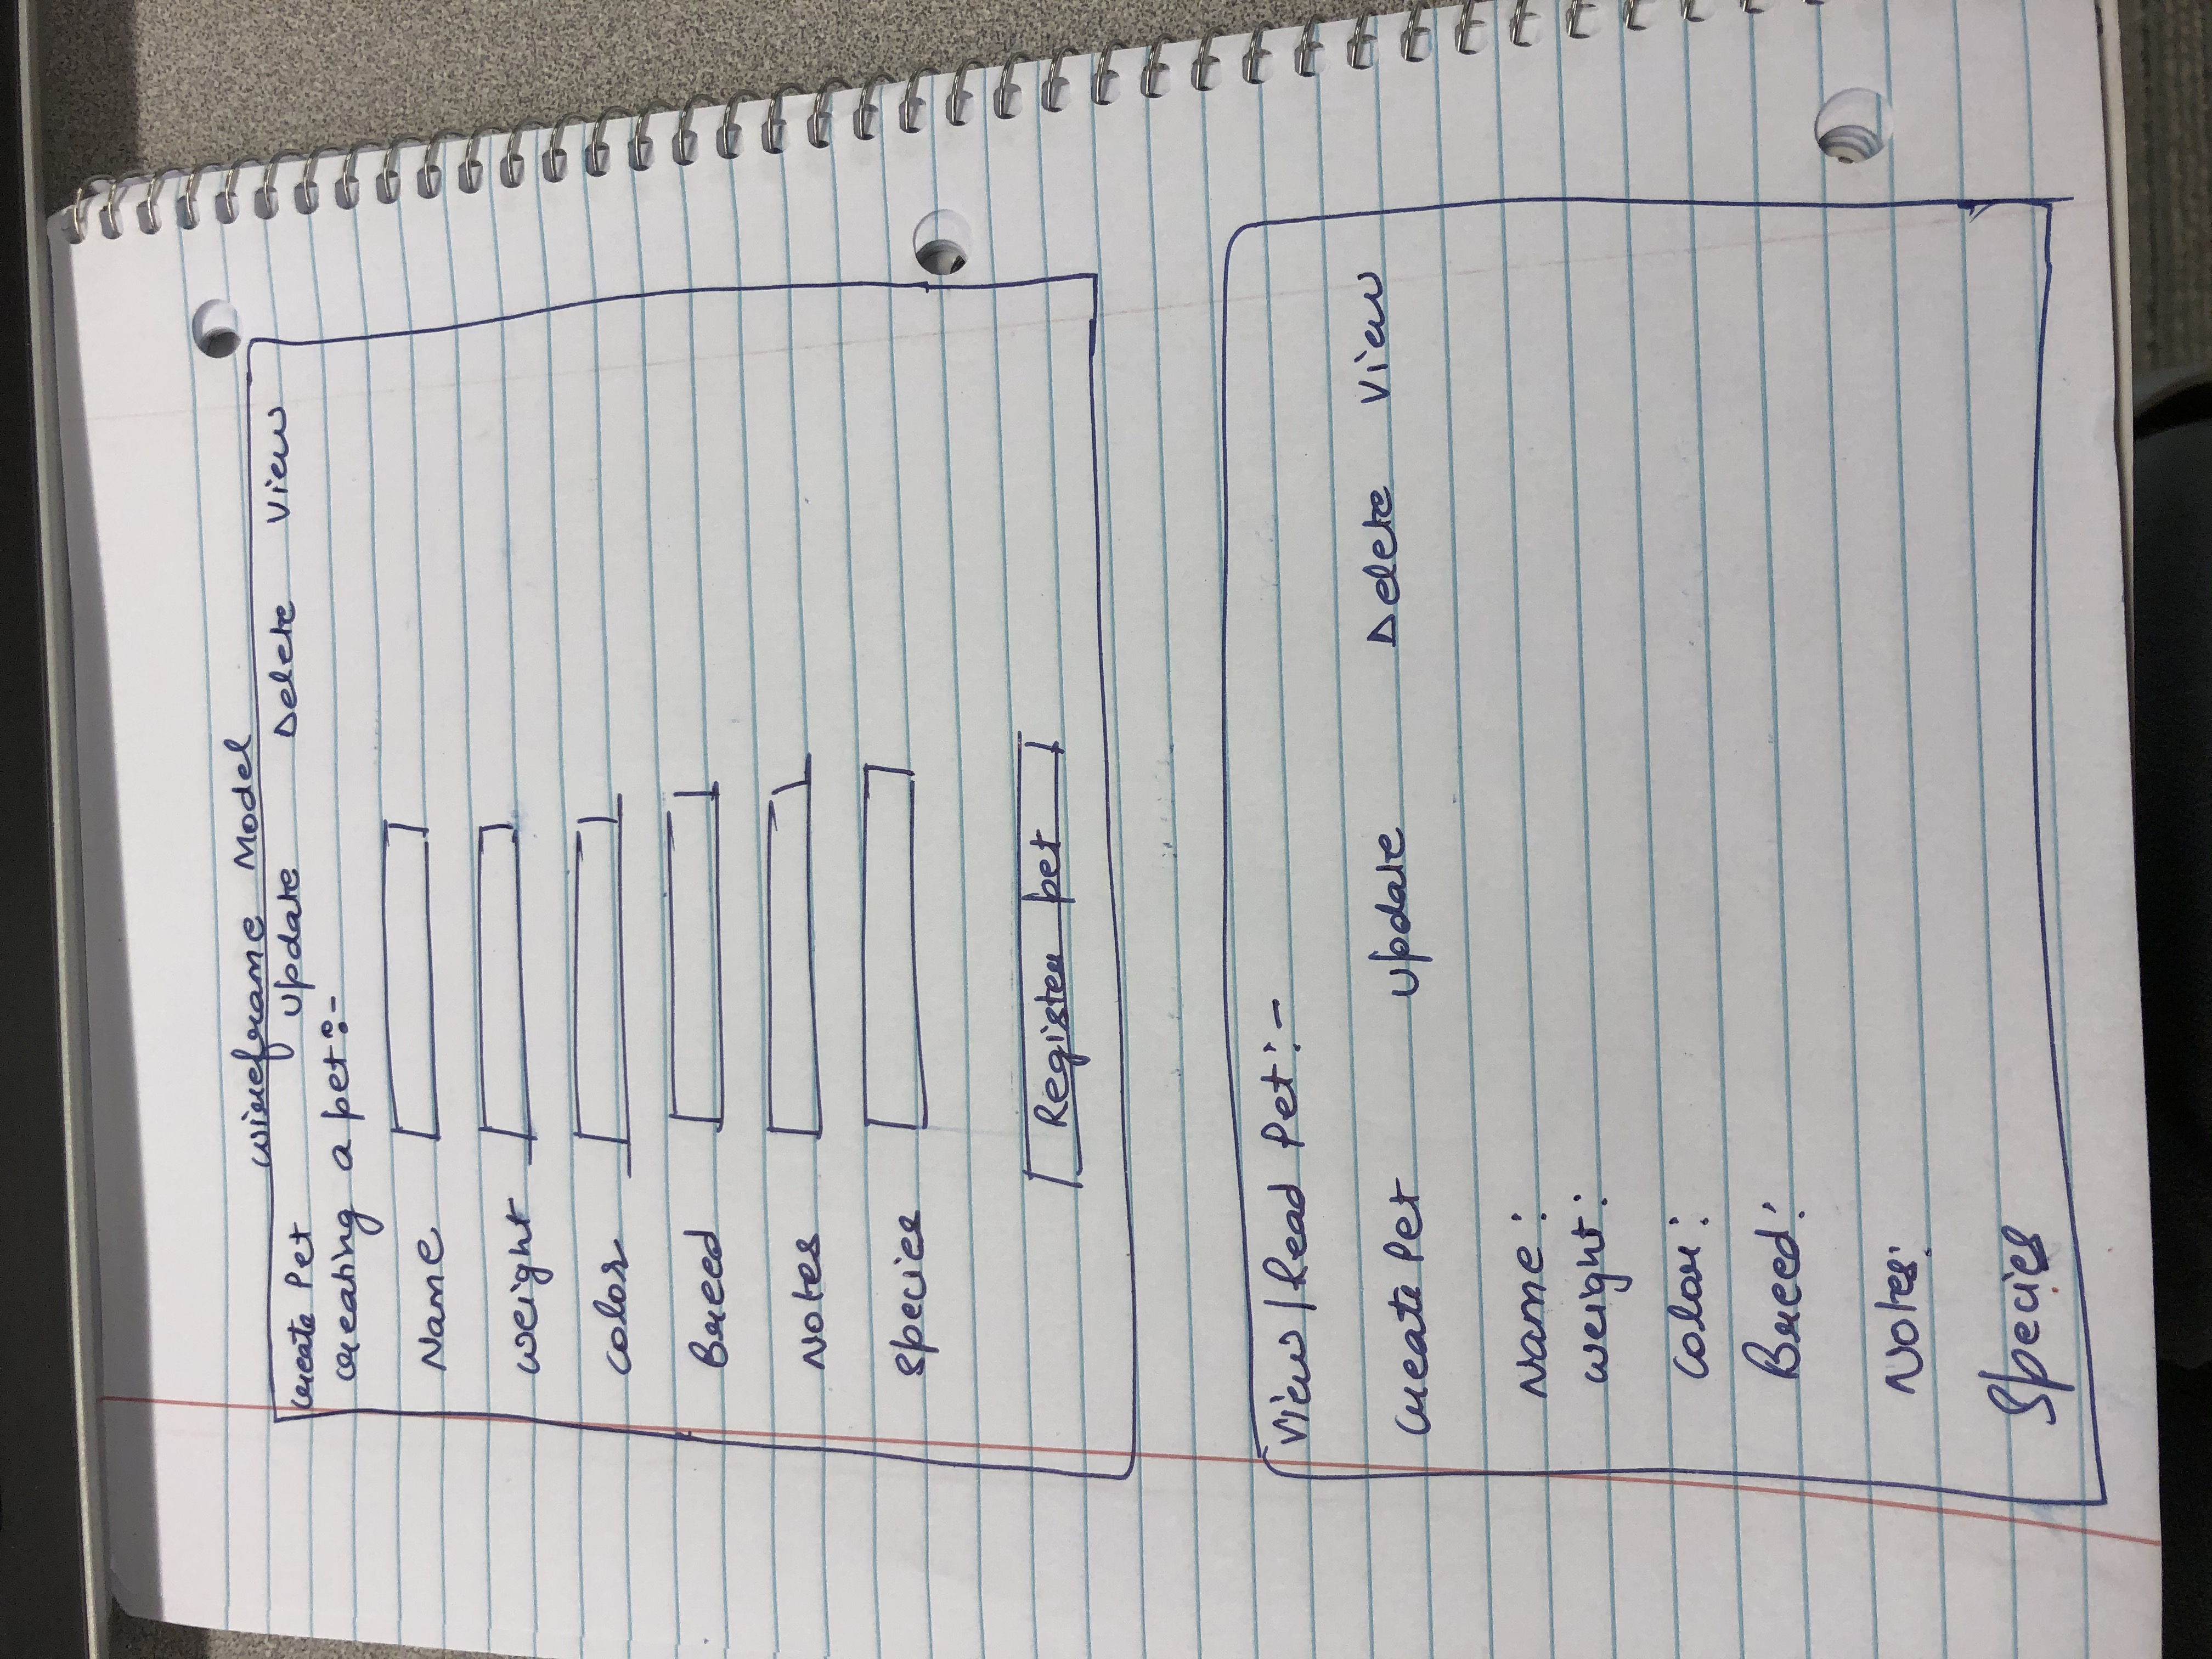 Wireframe Model
Create Pet Update Delete View
Creating a pet:-
Name
Weight
Color
Breed
Notes
Species
Register pet
View/Read Pet:-
Create Pet Update Delete View
Name:
Weight:
Color:
Breed:
Notes:
Species